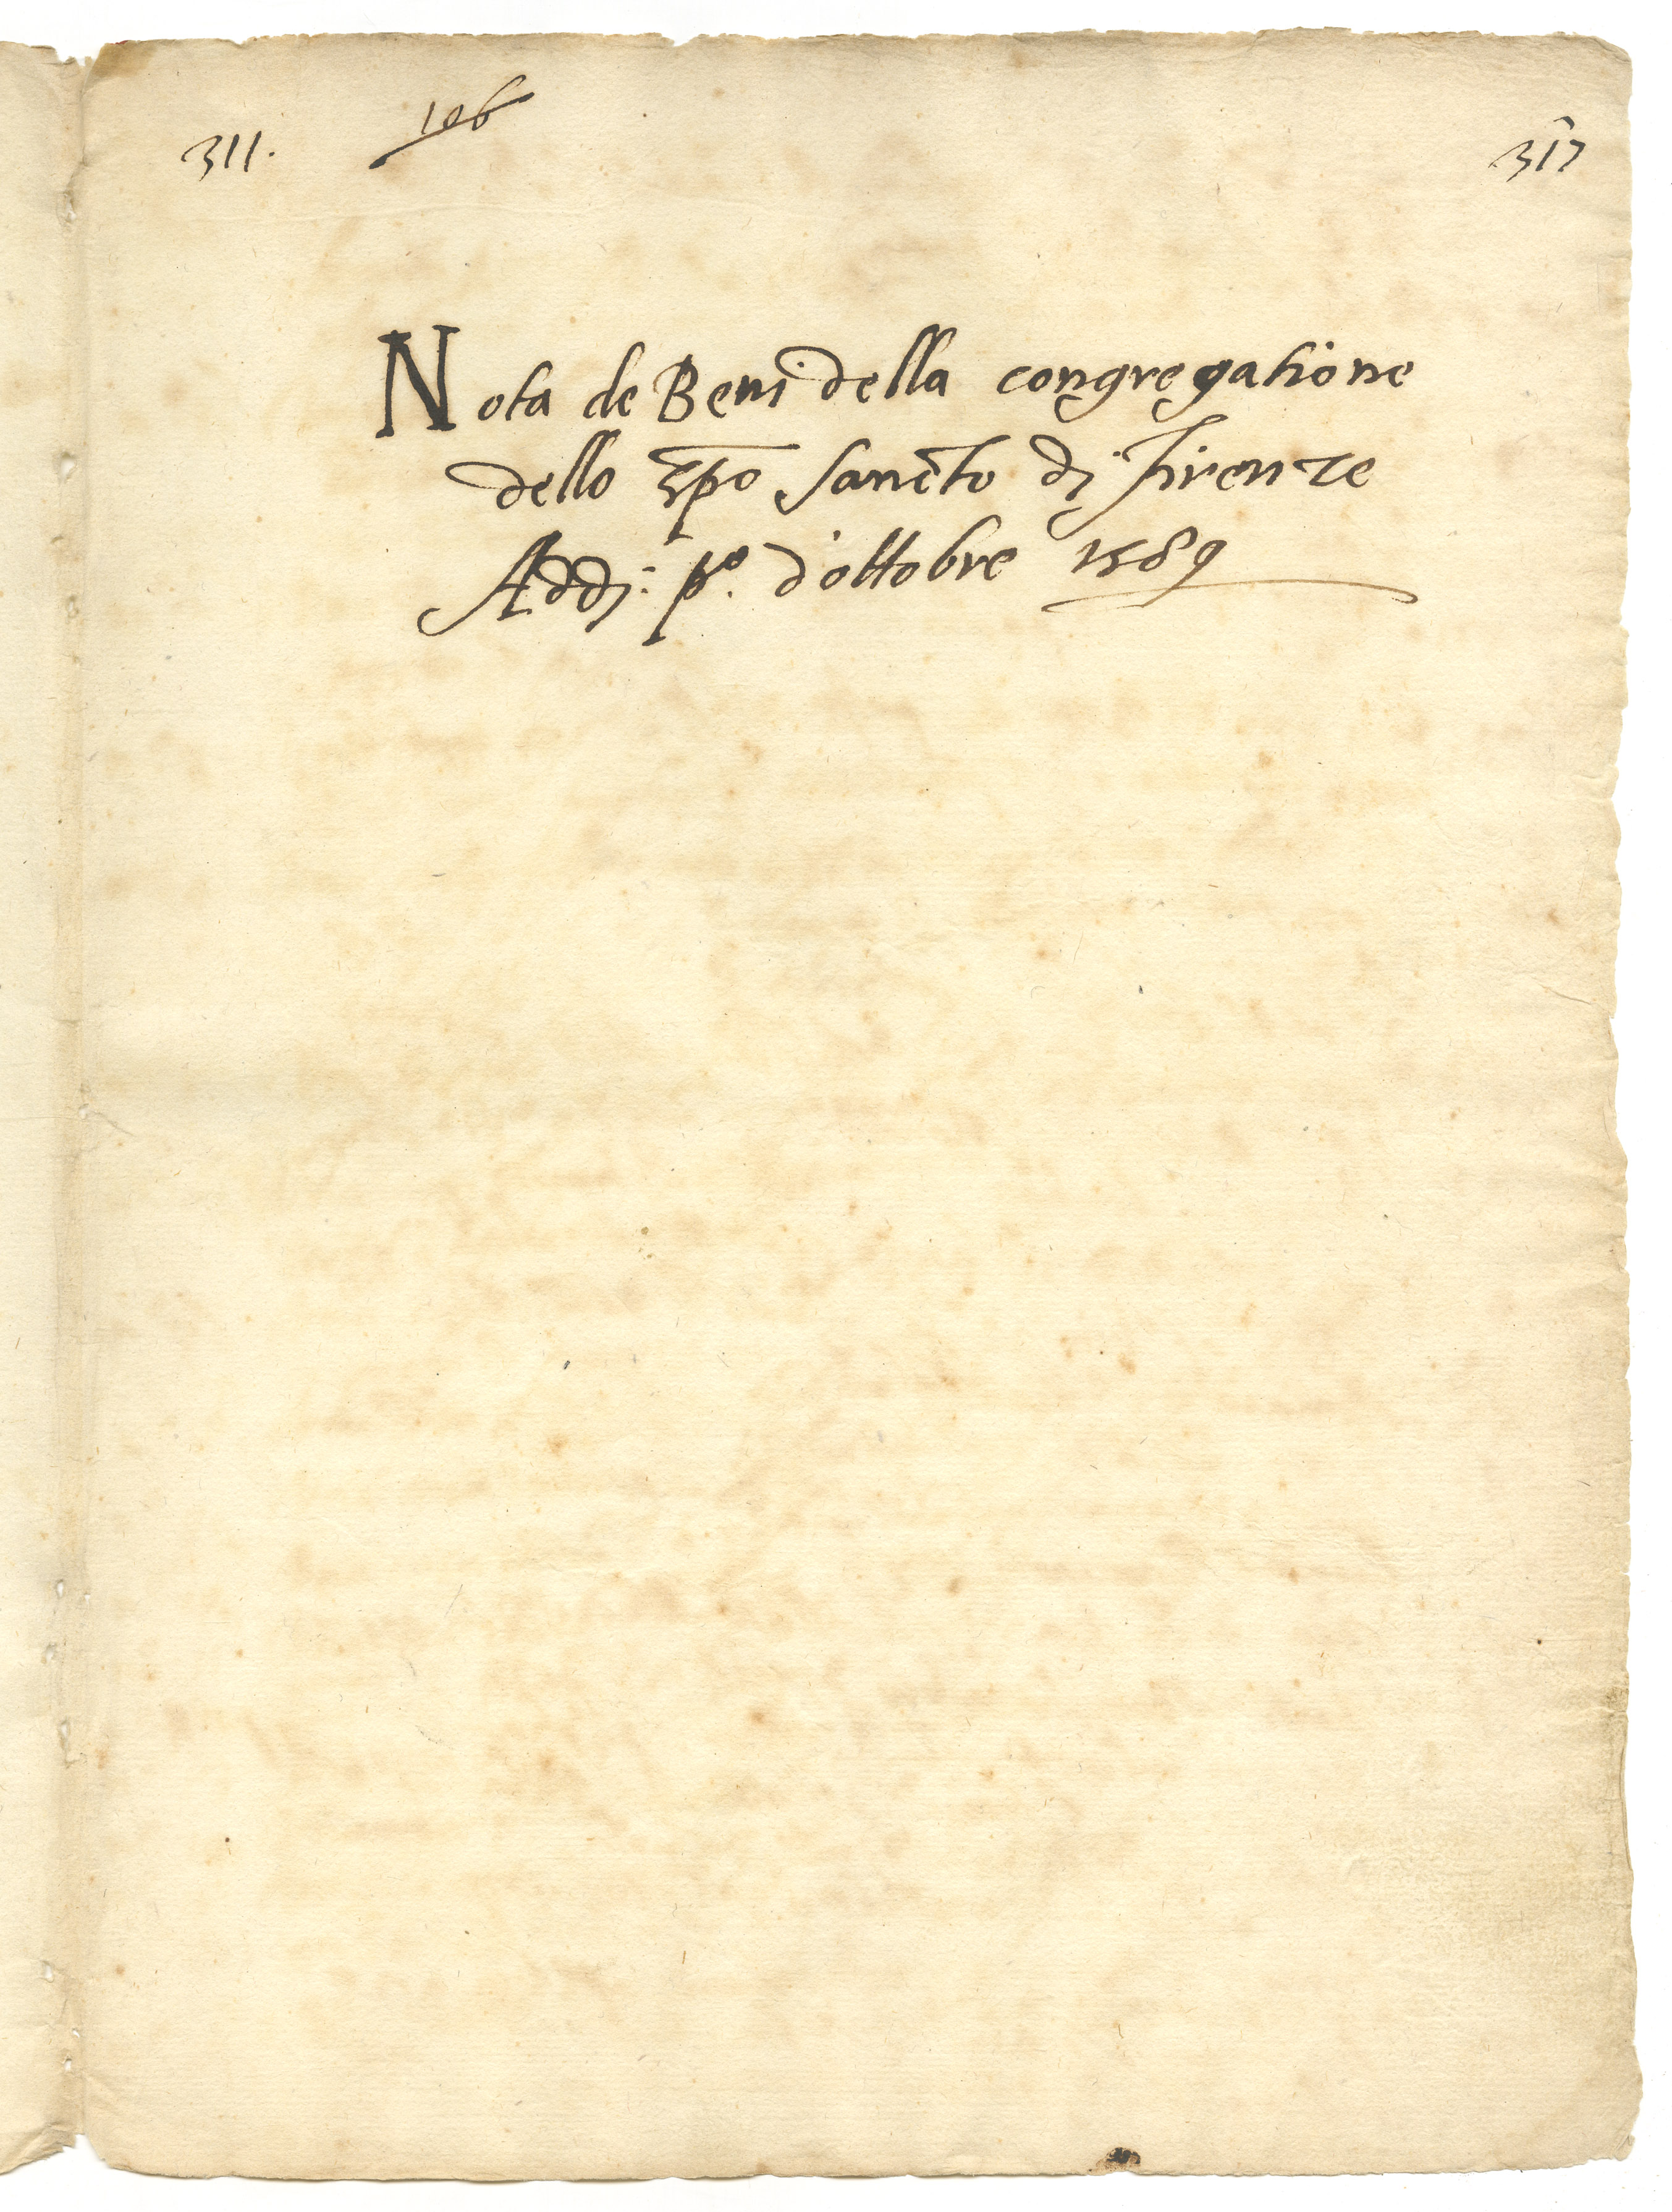 311. 106 317
Nota de Beni della congregatione
dello spo sancto di firenze
Addj: po. d'ottobre 1589